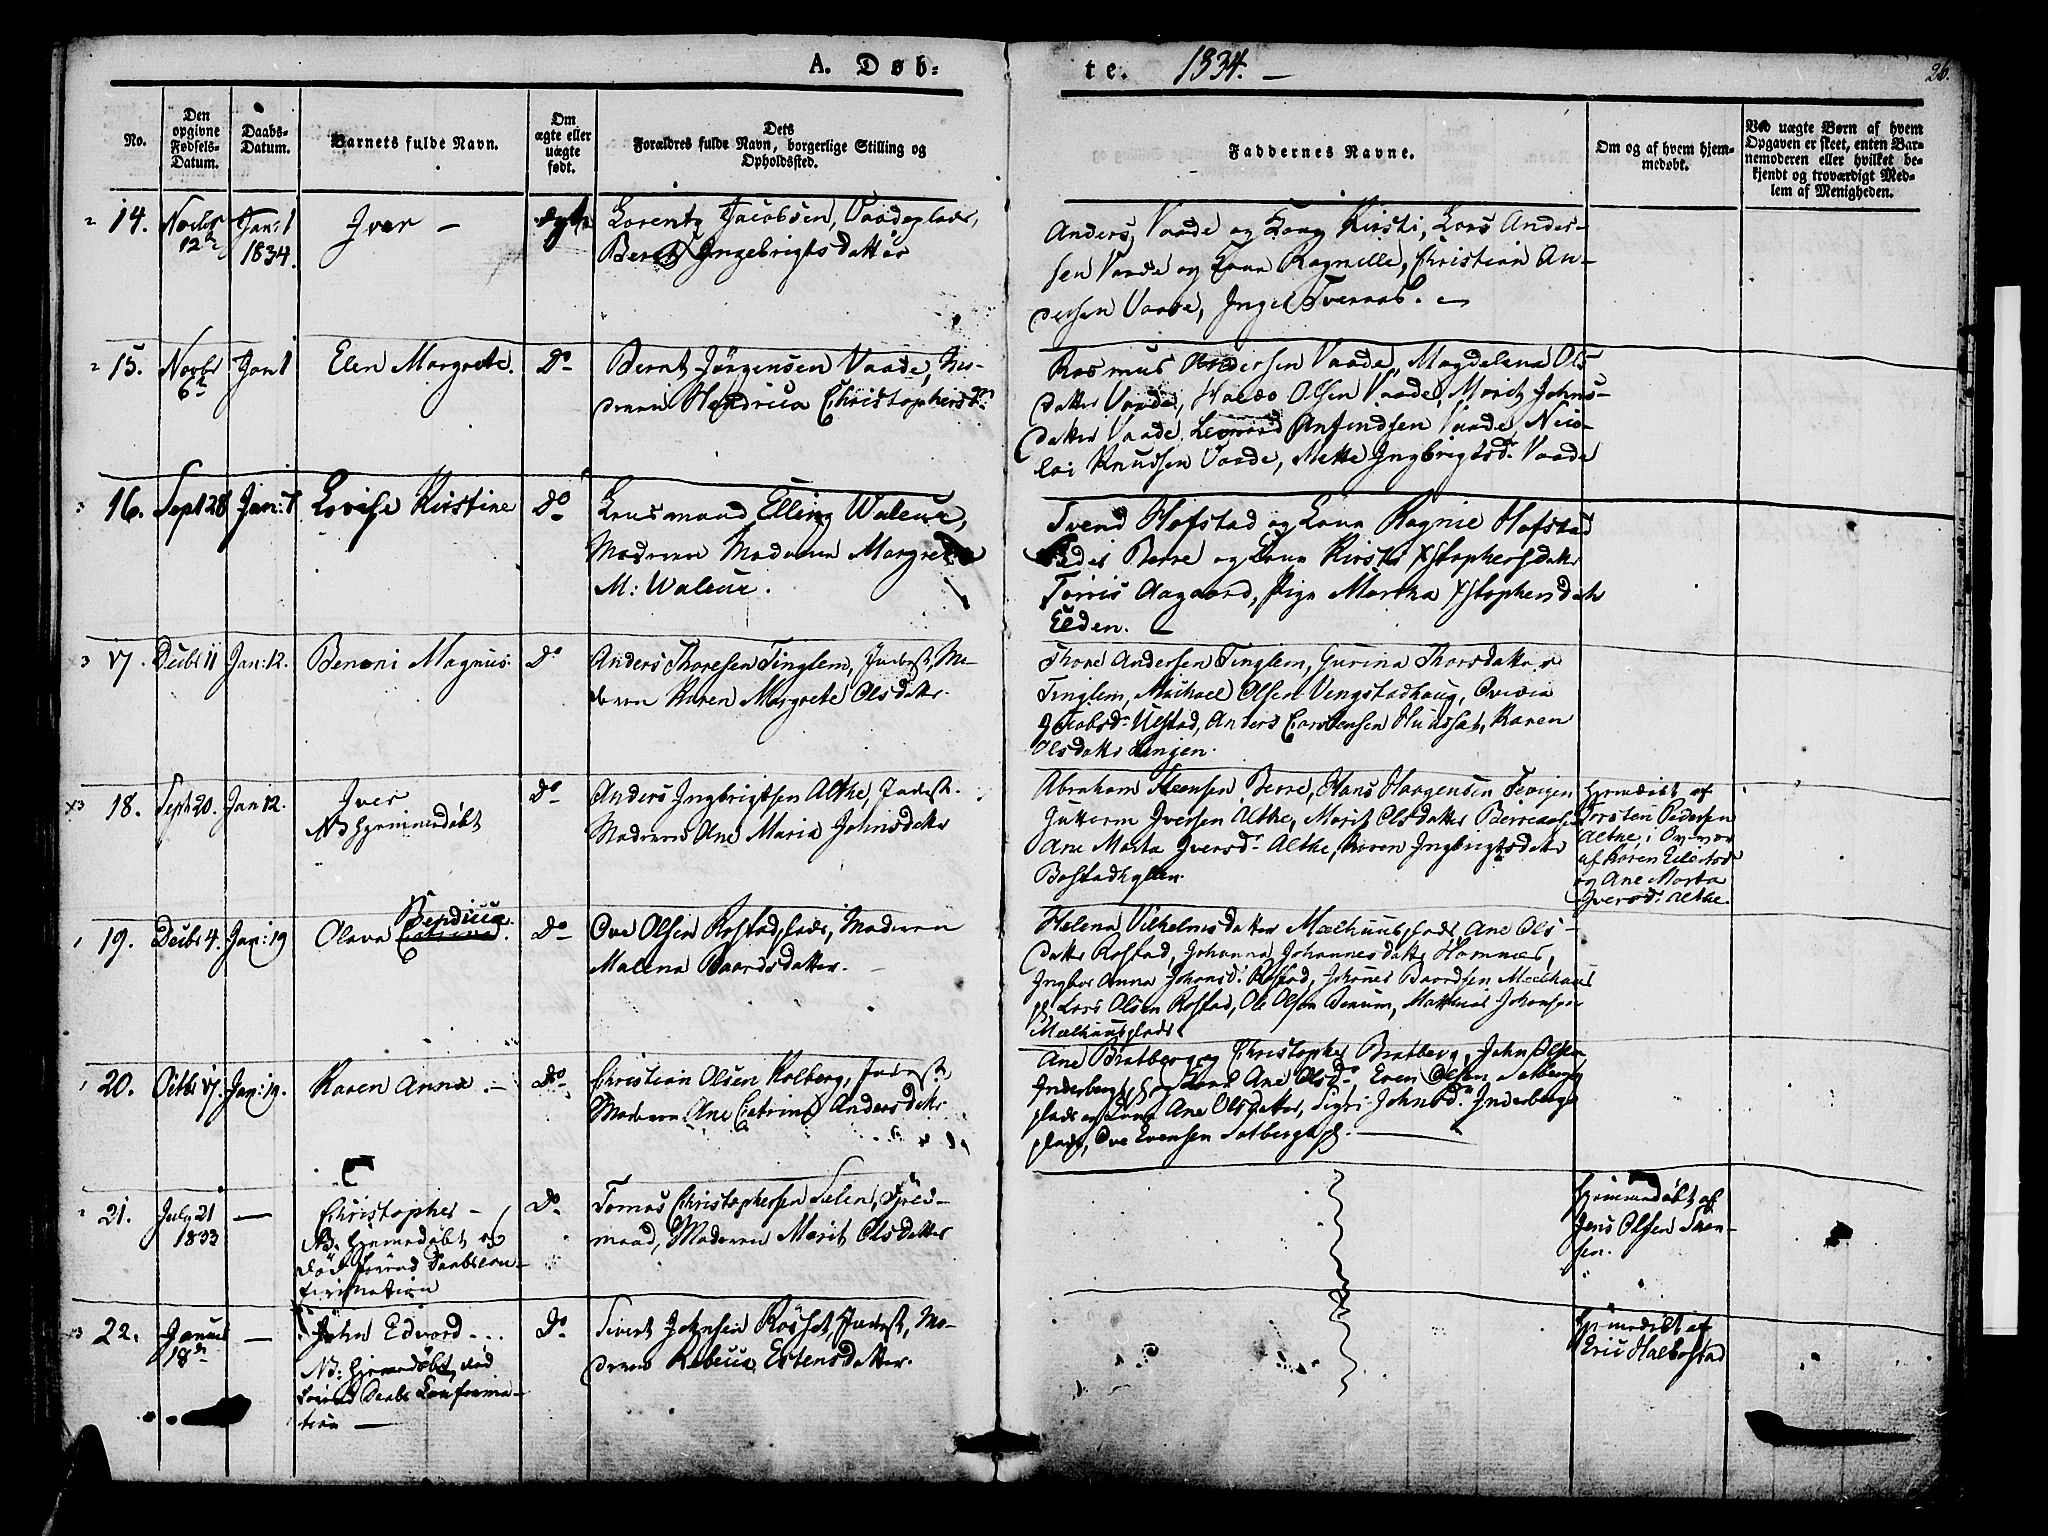 A. Døb-
te. 1834. —
26.
No.
Den opgivne Fødsels-Datum.
Daabs-Datum.
Barnets fulde Navn.
Om ægte eller uægte født.
Dets Forældres fulde Navn, borgerlige Stilling og Opholdssted.
Faddernes Navne.
Om og af hvem hjem-medøbt.
Ved uægte Børn af hvem Opgaven er skeet, enten Bar-nemoderen eller hvilket be-kjendt og troværdigt Med-lem af Menigheden.
2 14. Novbr 12te Jan: 1 1834. Iver — ægte
Lorentz Jacobsen, Vaadeplads,
Beret Ingebrigtsdatter
Anders Vaade og Kone Kirsti, Lars Ander-
sen Vaade og Kone Ragnille, Christian An-
dersen Vaade, Ingel Tveraas. —
2 15. Novbr 6te Jan 1 Elen Margrete. Do
Bernt Jørgensen Vaade, Mo-
deren Hendrica Christophersdr
Rasmus Andersen Vaade, Magdelena Ols
datter Vaade, Olsen Vaade, Marit Johns-
datter Vaade, Leonard Anfindsen Vaade, Nico-
lai Knudsen Vaade, Mette Ingbrigtsdr Vaade
3 16. Sept 28 Jan: 1 Lovise Kirstine Do
Elling Waleur,
Moderen Madame Margrete
M: Waleur.
Svend Hofstad og Kone Ragnie Hofstad
Peder Berre og Kone Kirsti Xstophersdatter
Torris Aagaard, Pige Martha Xstophersdatr
Elden. —
3 17. Decbr 11 Jan: 12. Benoni Magnus. Do
Anders Thoresen Tinglem, Inderst, Mo-
deren Karen Margrete Olsdatter.
Thore Andersen Tinglem, Gurina Thorsdatter
Tinglem, Michael Olsen Vengstadhaug,
Jacobsdr Ulstad, Anders Carstensen, Karen
Olsdatter Lingen.
x3 18. Sept 20. Jan 12. Iver Do
NB hjemmedøbt
Anders Ingbrigtsen Altke, Inderst.
Moderen Ane Maria Johnsdatter
Abraham Steensen Berre, Hans Haagensen
Guttorm Iversen Altke, Marit Olsdatter
Ane Marta Iversdr Altke, Karen Ingbrigtsdatter
Bostadhylen.
Hjemedøbt af
Torsten Pedersen
Altke, i Overvær
af Karen
og Ane Marta
Iversdr Altke.
1 19. Decbr 4. Jan: 19 Olava Bendicta Do
Ove Olsen Rostadplads, Moderen
Malena Baardsdatter. —
Helena Vilhelmsdatter Mælhuusplads Ane Ols-
datter Rostad, Johanna Johannesdatter Hamnes,
Ingbor Anna Johansdr Rostad, Johanes Baardsen Mælhuus
pl. Lars Olsen Rostad, Ole Olsen Benum, Mathias Johansen
Mælhuusplads
1 20. Octbr 17. Jan: 19. Karen Anna. — Do
Christian Olsen Kolberg, Inderst
Moderen Ane Catrine Andersdatter
Ane Bratberg og Christopher Bratberg, John Olsen
Inderbergspl og Kone Ane Olsdr, Even Olsen Salbergs
plads og Kone Ane Olsdatter, Sigri Johnsdr Inderbergs
plads, Ove Evensen Salbergspl. —
2 21. July 21 1833 — Christopher — Do
NB. Hjemedøbt og
død førend Daabscon-
firmation
Tomas Christophersen Selen,
mand, Moderen Marit Olsdatter
Hjemmedøbt af
Jens Olsen Skan-
sen.
x3 22. Januar 18de — John Edvard Do
NB: Hjemedøbt, død
førend Daabs Confirma-
tion —
Sivert Johnsen Rosset, Inderst, Mo-
deren Rebecca Estensdatter.
Hjemedøbt af
Eric Halbostad